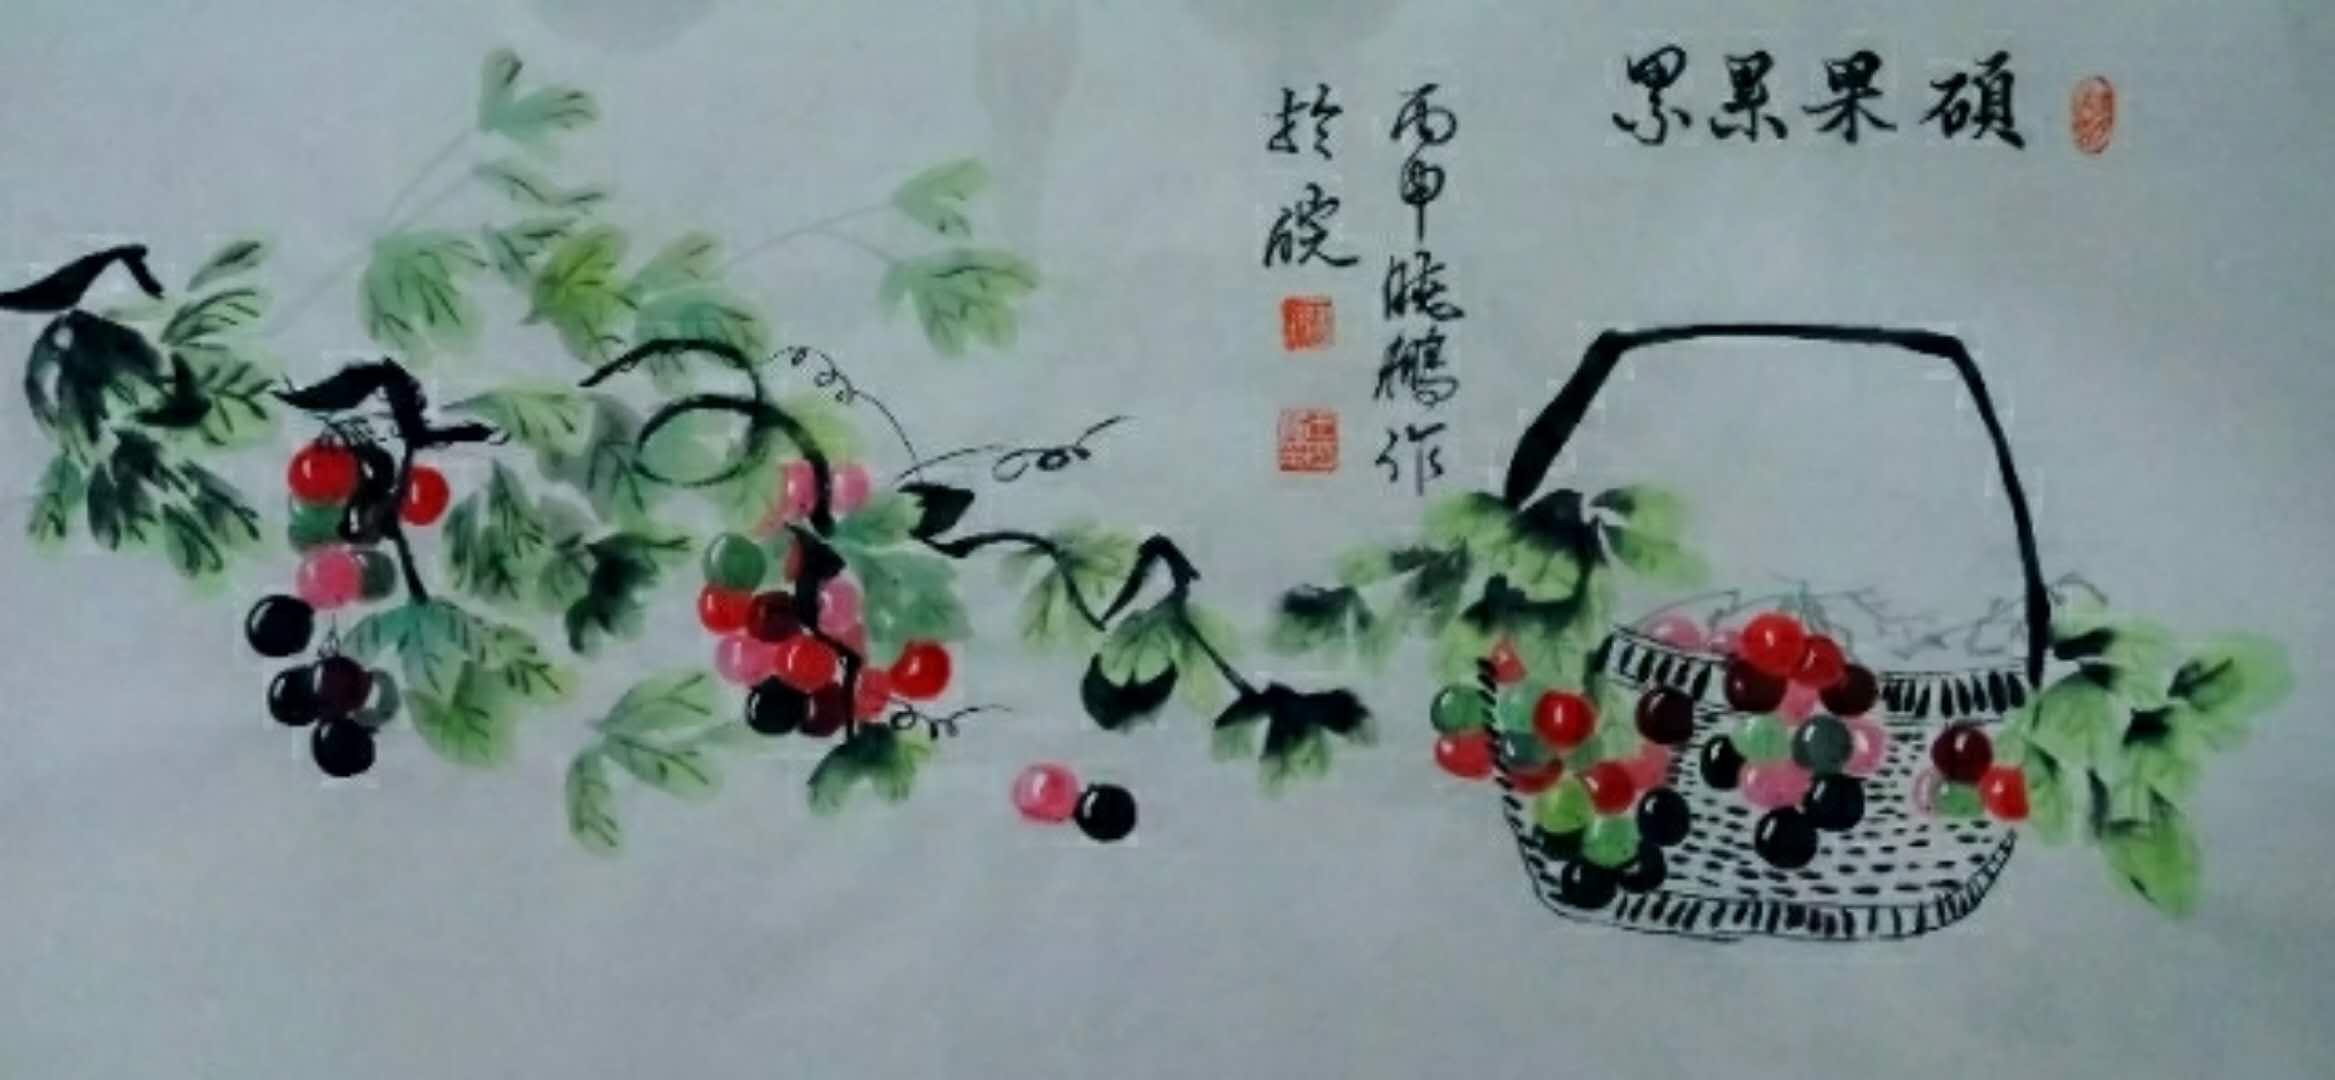 硕果累累
丙申晓鹏作
於皖